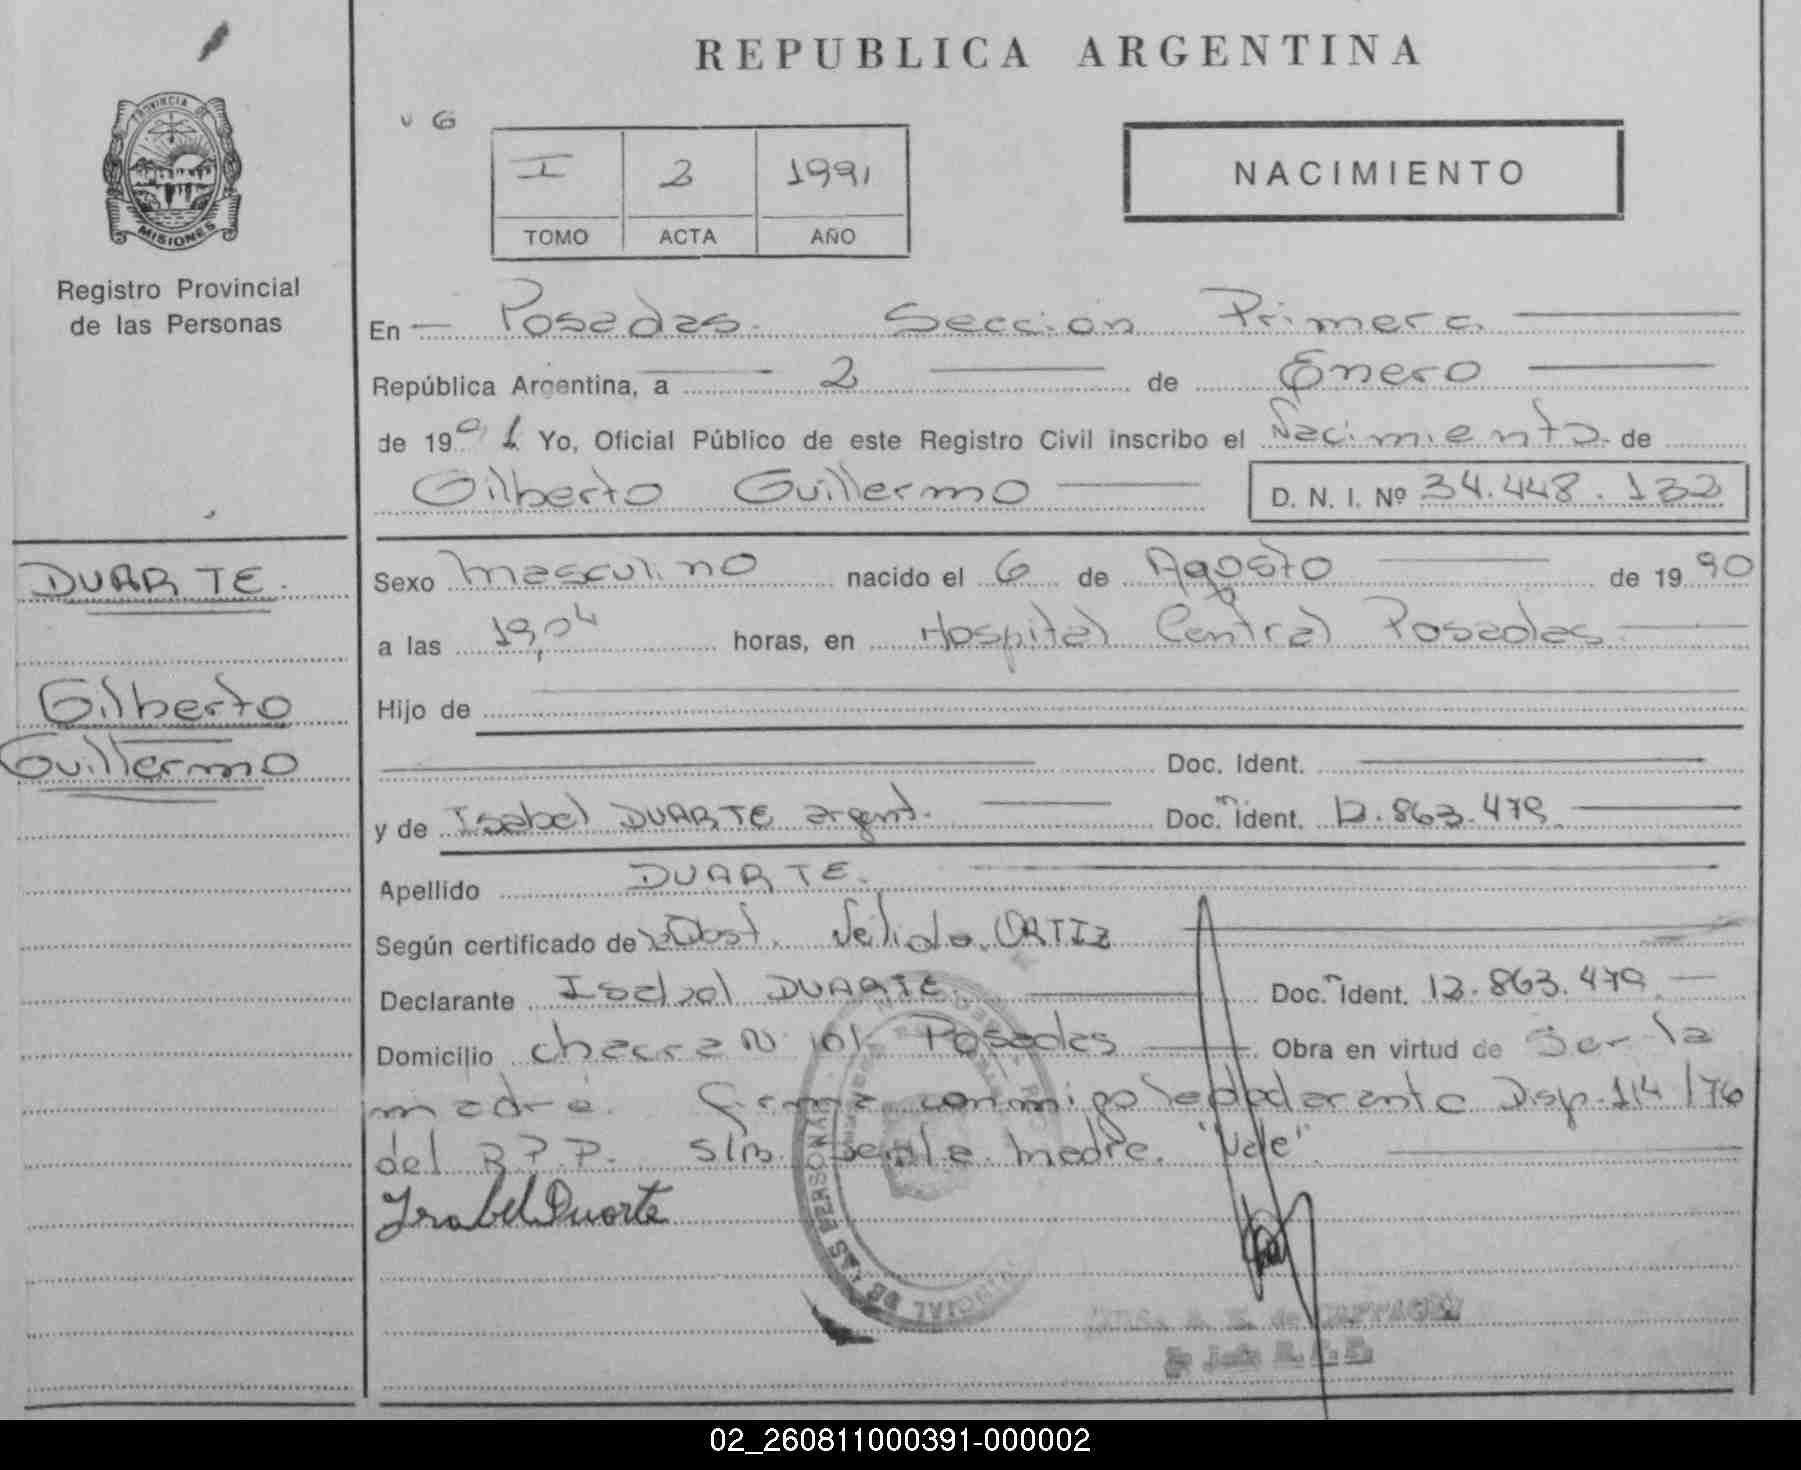 REPUBLICA ARGENTINA
PROVINCIA DE
MISIONES
Registro Provincial
de las Personas
I 2 1991
TOMO ACTA AÑO
NACIMIENTO
En Posadas. Sección Primera
República Argentina, a 2 de Enero
de 1991 Yo, Oficial Público de este Registro Civil inscribo el Nacimiento de
Gilberto Guillermo D. N. I. Nº 34.448.132
DUARTE.
Gilberto
Guillermo
Sexo masculino nacido el 6 de Agosto de 1990
a las 19,04 horas, en Hospital Central Posadas
Hijo de
Doc. Ident.
y de Isabel DUARTE argent. Doc. Ident. 12.863.479
Apellido DUARTE.
Según certificado de la Obst. Nelida ORTIZ
Declarante Isabel DUARTE Doc. Ident. 12.863.479
Domicilio chacra N 101 Posadas Obra en virtud de ser la
madre. firma conmigo la declarante Disp. 114/76
del R.P.P. S/R la madre. "Vale".
Isabel Duarte
02_260811000391-000002